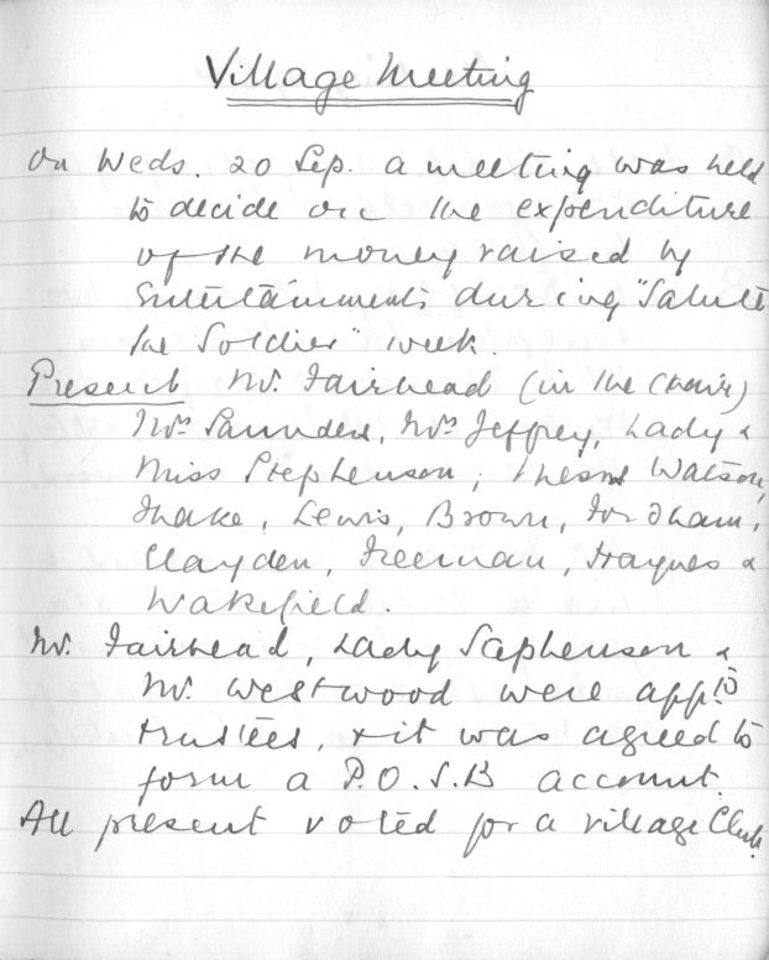 Village Meeting
On Weds. 20 Sep. a meeting was held
to decide on the expenditure
of the money raised by
Entertainments during "Salute
the Soldier" week.
Present Mr. Fairhead (in the Chair)
Mrs Saunders, Mrs Jeffrey, Lady &
Miss Stephenson, Messrs Watson,
Thake, Lewis, Brown, Fordham,
Clayden, Freeman, Haynes &
Wakefield.
Mr. Fairhead, Lady Stephenson &
Mr. Westwood were app. to
trustees, & it was agreed to
form a P.O.S.B account.
All present voted for a village Club.